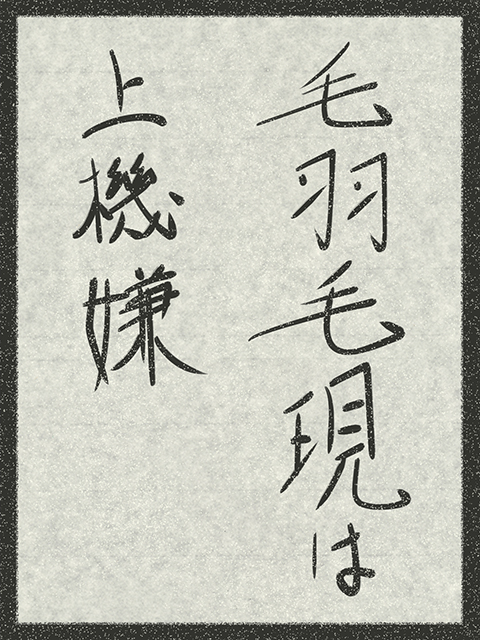 毛羽毛現は
上機嫌